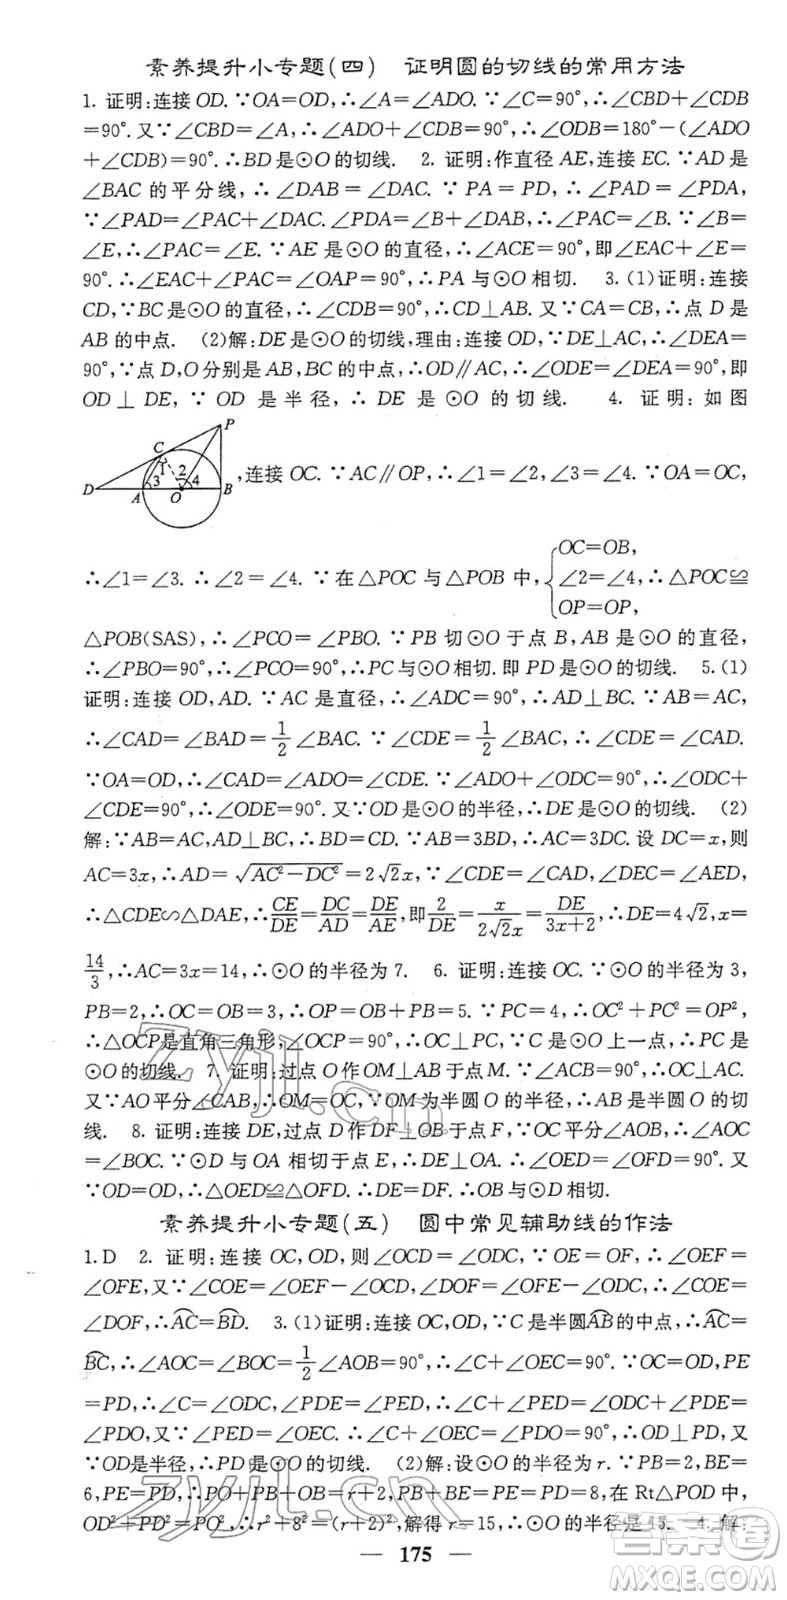 素养提升小专题(四)　证明圆的切线的常用方法
1. 证明:连接 OD. ∵OA=OD,∴∠A=∠ADO. ∵∠C=90°,∴∠CBD+∠CDB
=90°. 又∵∠CBD=∠A,∴∠ADO+∠CDB=90°,∴∠ODB=180°-(∠ADO
+∠CDB)=90°. ∴BD 是⊙O 的切线.　2. 证明:作直径 AE,连接 EC. ∵AD 是
∠BAC 的平分线,∴∠DAB=∠DAC. ∵PA=PD,∴∠PAD=∠PDA,
∵∠PAD=∠PAC+∠DAC. ∠PDA=∠B+∠DAB,∴∠PAC=∠B. ∵∠B=
∠E,∴∠PAC=∠E. ∵AE 是⊙O 的直径,∴∠ACE=90°,即∠EAC+∠E=
90°. ∴∠EAC+∠PAC=∠OAP=90°. ∴PA 与⊙O 相切.　3. (1)证明:连接
CD,∵BC 是⊙O 的直径,∴∠CDB=90°,∴CD⊥AB. 又∵CA=CB,∴点 D 是
AB 的中点.　(2)解:DE 是⊙O 的切线,理由:连接 OD,∵DE⊥AC,∴∠DEA=
90°,∵点 D,O 分别是 AB,BC 的中点,∴OD∥AC,∴∠ODE=∠DEA=90°,即
OD⊥DE,∵OD 是半径,∴DE 是⊙O 的切线.　4. 证明:如图
P
C
1 2
3 4
D A O B
,连接 OC. ∵AC∥OP,∴∠1=∠2,∠3=∠4. ∵OA=OC,
∴∠1=∠3. ∴∠2=∠4. ∵在△POC 与△POB 中,{OC=OB, ∠2=∠4, OP=OP, ∴△POC≌
△POB(SAS),∴∠PCO=∠PBO. ∵PB 切⊙O 于点 B,AB 是⊙O 的直径,
∴∠PBO=90°. ∴∠PCO=90°,∴PC 与⊙O 相切. 即 PD 是⊙O 的切线.　5. (1)
证明:连接 OD,AD. ∵AC 是直径,∴∠ADC=90°,∴AD⊥BC. ∵AB=AC,
∴∠CAD=∠BAD=1/2∠BAC. ∵∠CDE=1/2∠BAC,∴∠CDE=∠CAD.
∵OA=OD,∴∠CAD=∠ADO. ∵∠ADO+∠ODC=90°,∴∠ODC+
∠CDE=90°,∴∠ODE=90°. 又∵OD 是⊙O 的半径,∴DE 是⊙O 的切线.　(2)
解:∵AB=AC,AD⊥BC,∴BD=CD. ∵AB=3BD,∴AC=3DC. 设 DC=x,则
AC=3x,∴AD=√(AC²-DC²)=2√2x. ∵∠CDE=∠CAD,∠DEC=∠AED,
∴△CDE∽△DAE,∴CE/DE=DC/AD=DE/AE,即2/DE=x/(2√2x)=DE/(3x+2). ∴DE=4√2,x=
14/3,∴AC=3x=14,∴⊙O 的半径为 7.　6. 证明:连接 OC. ∵⊙O 的半径为 3,
PB=2,∴OC=OB=3,∴OP=OB+PB=5. ∵PC=4,∴OC²+PC²=OP²,
∴△OCP是直角三角形,∠OCP=90°,∴OC⊥PC. ∵C 是⊙O 上一点,∴PC 是
⊙O 的切线.　7. 证明:过点 O 作 OM⊥AB 于点 M. ∵∠ACB=90°,∴OC⊥AC.
又∵AO平分∠CAB,∴OM=OC. ∵OM 为半圆 O 的半径,∴AB 是半圆 O 的切
线.　8. 证明:连接 DE,过点 D 作 DF⊥OB 于点 F,∵OC 平分∠AOB,∴∠AOC
=∠BOC. ∵⊙D 与 OA 相切于点 E,∴DE⊥OA. ∴∠OED=∠OFD=90°. 又
∵OD=OD,∴△OED≌△OFD. ∴DE=DF. ∴OB 与⊙D 相切.
素养提升小专题(五)　圆中常见辅助线的作法
1. D　2. 证明:连接 OC,OD,则∠OCD=∠ODC,∵OE=OF,∴∠OEF=
∠OFE,又∵∠COE=∠OEF-∠OCD,∠DOF=∠OFE-∠ODC,∴∠COE=
∠DOF,∴⌒AC=⌒BD.　3. (1)证明:连接 OC,OD,∵C 是半圆⌒AB的中点,∴⌒AC=
⌒BC,∴∠AOC=∠BOC=1/2∠AOB=90°,∴∠C+∠OEC=90°. ∵OC=OD,PE
=PD,∴∠C=∠ODC,∠PED=∠PDE,又∵∠PED=∠OEC. ∴∠C+∠OEC=∠ODC+∠PDO=90°,∴OD⊥PD,又
∵OD是半径,∴PD 是⊙O 的切线.　(2)解:设⊙O 的半径为 r. ∵PB=2,BE=
6,PE=PD,∴PO=PB+OB=r+2,PD=PE=PB+PD=8,在 Rt△POD 中,
OD²+PD²=PO²,∴r²+8²=(r+2)²,解得 r=15,∴⊙O 的半径是 15.　4. 解:
— 175 —
zyjl.cn
zyjl.cn
答案圈
MXQE.COM